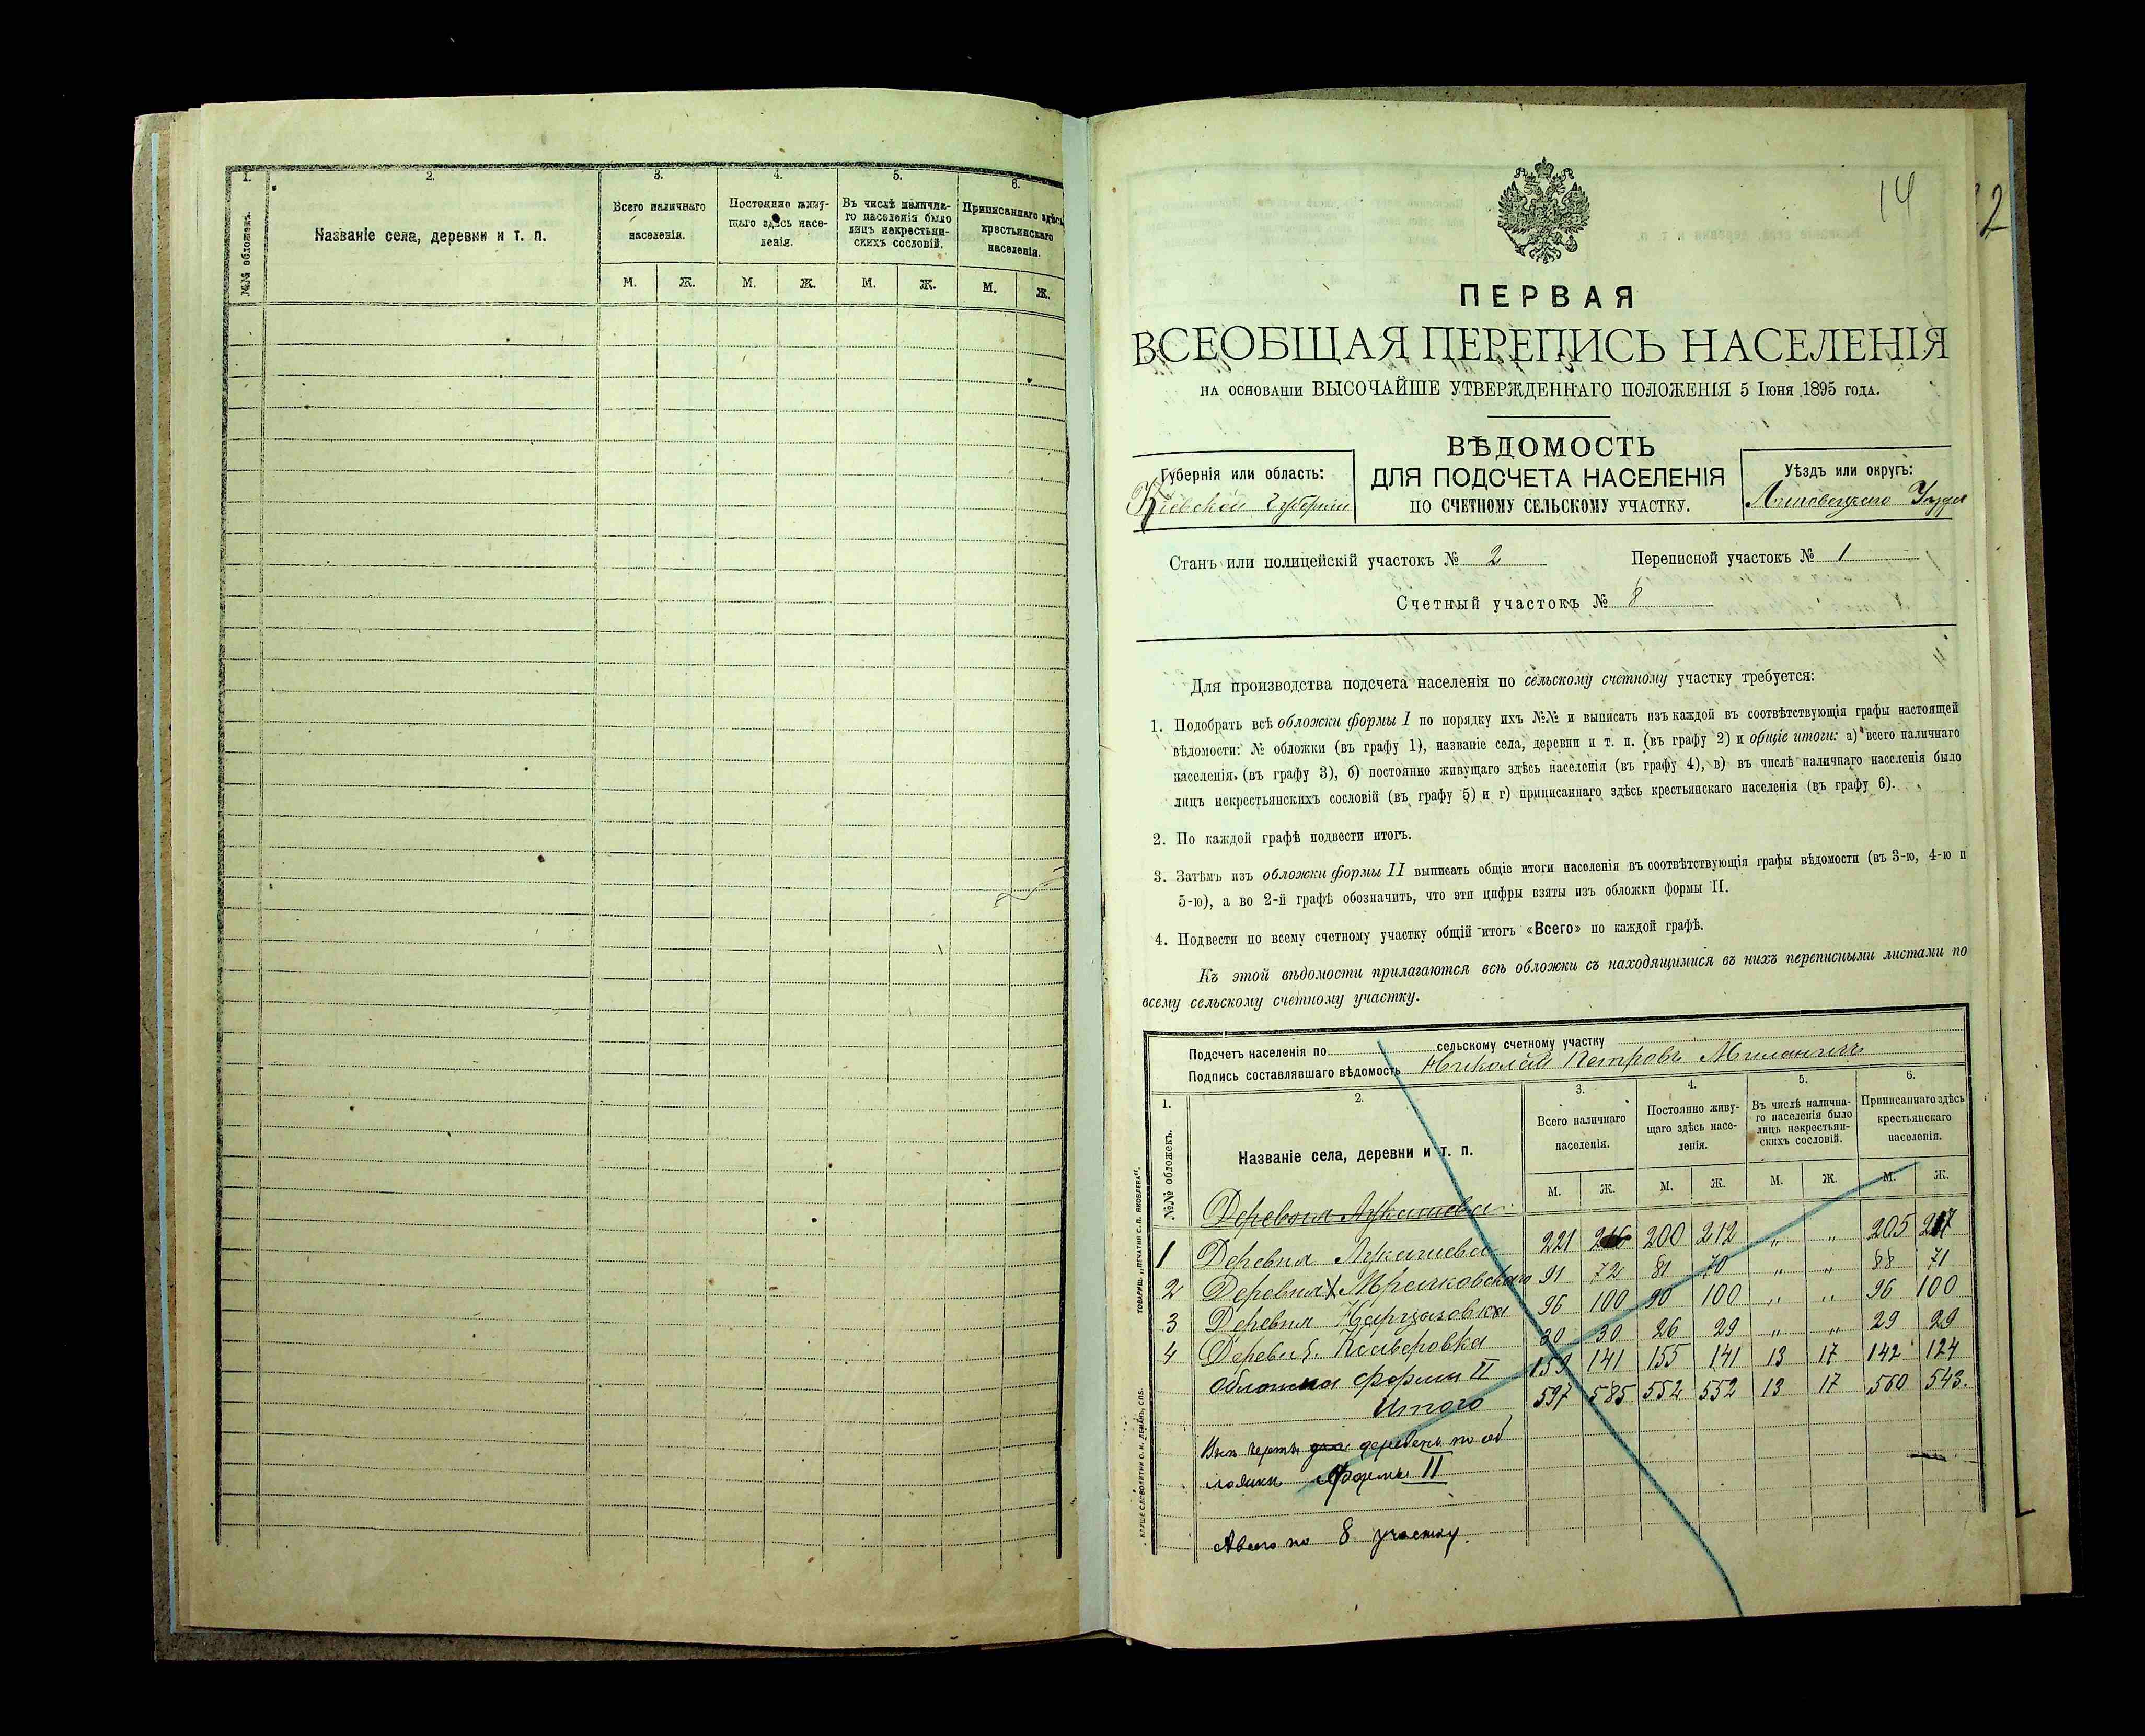 1.
2.
3.
4.
5.
6.
№№ обложекъ.
Названіе села, деревни и т. п.
Всего наличнаго населенія.
Постоянно живу-
щаго здѣсь насе-
ленія.
Въ числѣ налична-
го населенія было
лицъ некрестьян-
скихъ сословій.
Приписаннаго здѣсь
крестьянскаго
населенія.
М. Ж. М. Ж. М. Ж. М. Ж.
14
2
ПЕРВАЯ
ВСЕОБЩАЯ ПЕРЕПИСЬ НАСЕЛЕНІЯ
НА ОСНОВАНІИ ВЫСОЧАЙШЕ УТВЕРЖДЕННАГО ПОЛОЖЕНІЯ 5 Іюня 1895 ГОДА.
Губернія или область:
Кіевской губерніи
ВѢДОМОСТЬ
ДЛЯ ПОДСЧЕТА НАСЕЛЕНІЯ
ПО СЧЕТНОМУ СЕЛЬСКОМУ УЧАСТКУ.
Уѣздъ или округъ:
Липовецкаго Уѣзда
Станъ или полицейскій участокъ № 2 Переписной участокъ № 1
Счетный участокъ № 8
Для производства подсчета населенія по сельскому счетному участку требуется:
1. Подобрать всѣ обложки формы I по порядку ихъ №№ и выписать изъ каждой въ соотвѣтствующія графы настоящей
вѣдомости: № обложки (въ графу 1), названіе села, деревни и т. п. (въ графу 2) и общіе итоги: а) всего наличнаго
населенія (въ графу 3), б) постоянно живущаго здѣсь населенія (въ графу 4), в) въ числѣ наличнаго населенія было
лицъ некрестьянскихъ сословій (въ графу 5) и г) приписаннаго здѣсь крестьянскаго населенія (въ графу 6).
2. По каждой графѣ подвести итогъ.
3. Затѣмъ изъ обложки формы II выписать общіе итоги населенія въ соотвѣтствующія графы вѣдомости (въ 3-ю, 4-ю и
5-ю), а во 2-й графѣ обозначить, что эти цифры взяты изъ обложки формы II.
4. Подвести по всему счетному участку общій итогъ «Всего» по каждой графѣ.
Къ этой вѣдомости прилагаются всѣ обложки съ находящимися въ нихъ переписными листами по
всему сельскому счетному участку.
Подсчетъ населенія по сельскому счетному участку
Подпись составлявшаго вѣдомость Николай Петровъ
1.
2.
3.
4.
5.
6.
№№ обложекъ.
Названіе села, деревни и т. п.
Всего наличнаго
населенія.
Постоянно живу-
щаго здѣсь насе-
ленія.
Въ числѣ налична-
го населенія было
лицъ некрестьян-
скихъ сословій.
Приписаннаго здѣсь
крестьянскаго
населенія.
М. Ж. М. Ж. М. Ж. М. Ж.
Деревня Лукашевка
1 Деревня Лукашевка 221 200 212 „ „ 205
2 Деревня 91 72 81 70 „ „ 88 71
3 Деревня 96 100 90 100 „ „ 96 100
4 Деревня 30 30 26 29 „ „ 29 29
Обложка формы II 159 141 155 141 13 17 142 124
Итого 597 585 552 552 13 17 560 543.
Внѣ черты деревень по об
ложки формы II
Авсего по 8 участку
ТОВАРИЩ. „ПЕЧАТНЯ С. П. ЯКОВЛЕВА“.
КЛИШЕ СЛОВОЛИТНИ О. И. ЛЕМАНЪ, СПБ.